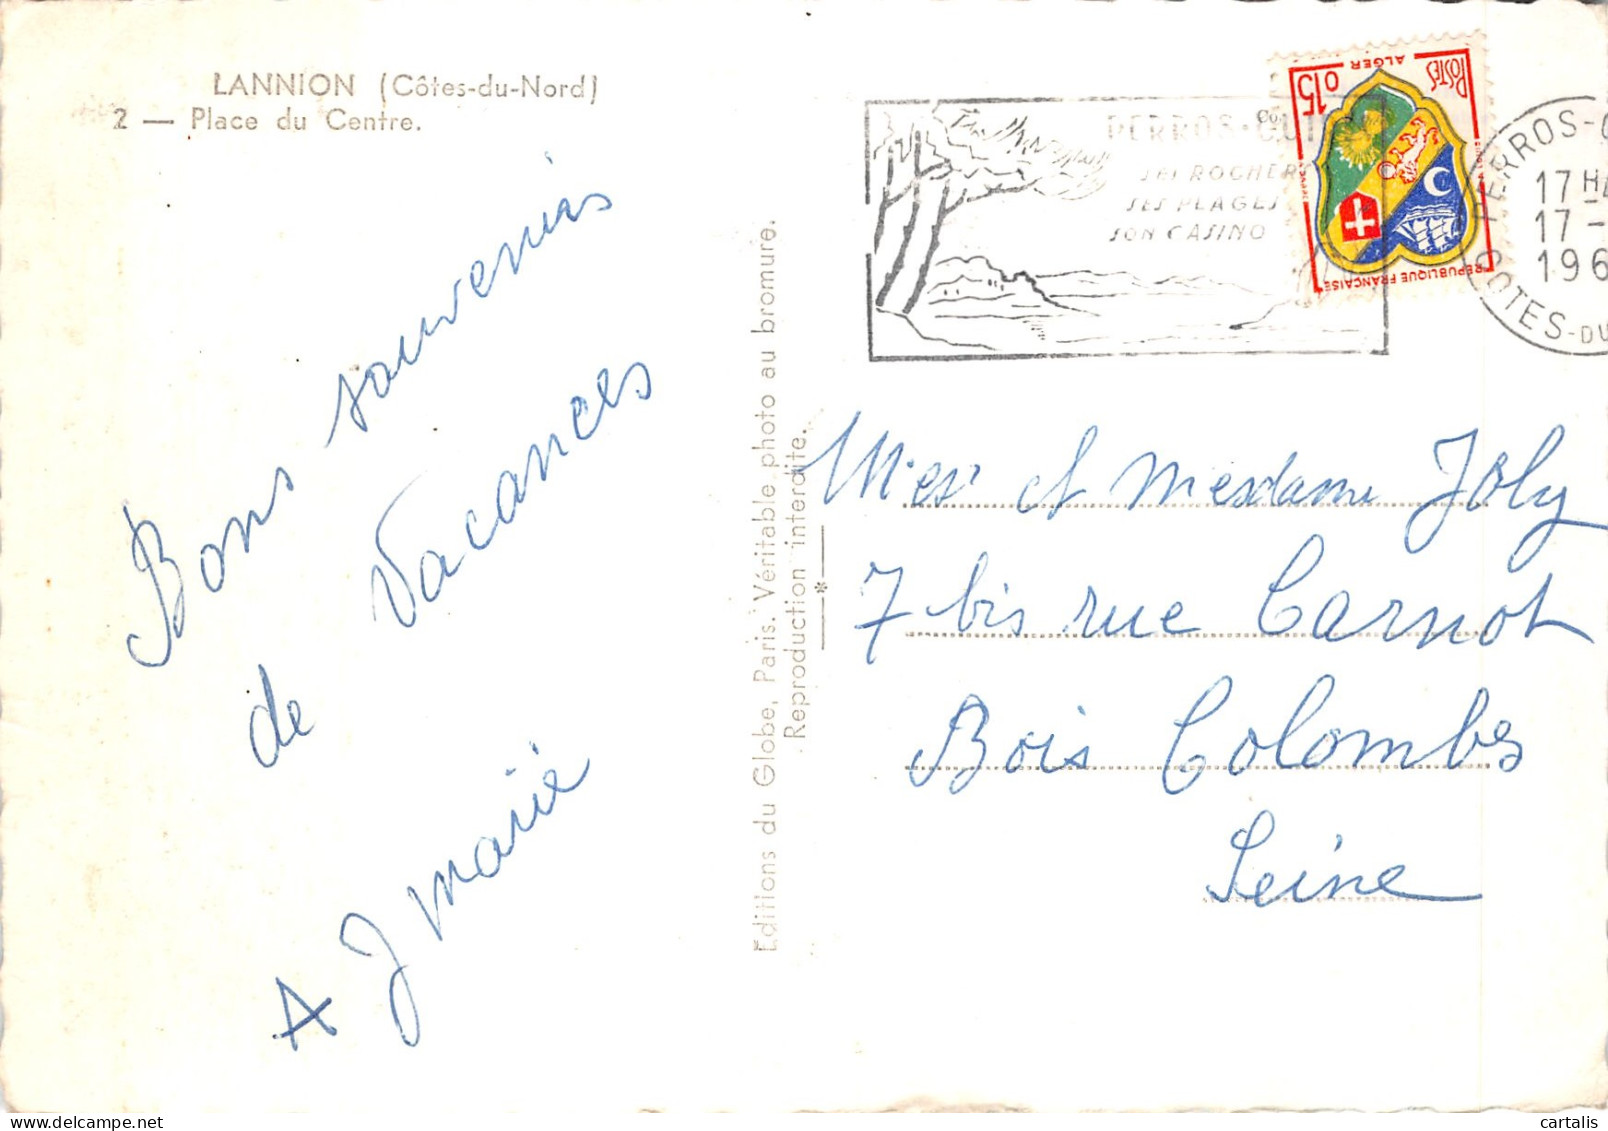 LANNION (Côtes-du-Nord)
2 — Place du Centre.
Bons souvenirs
de Vacances
A J marie
Editions du Globe, Paris. Véritable photo au bromure.
Reproduction interdite.
PERROS-GUI
SES ROCHERS
SES PLAGES
SON CASINO
POSTES
ALGER
0,15
REPUBLIQUE FRANÇAISE
PERROS-G
17 H
17 -
196
COTES-DU
Mes et Mesdame Joly
7 bis rue Carnot
Bois Colombes
Seine
cartalis